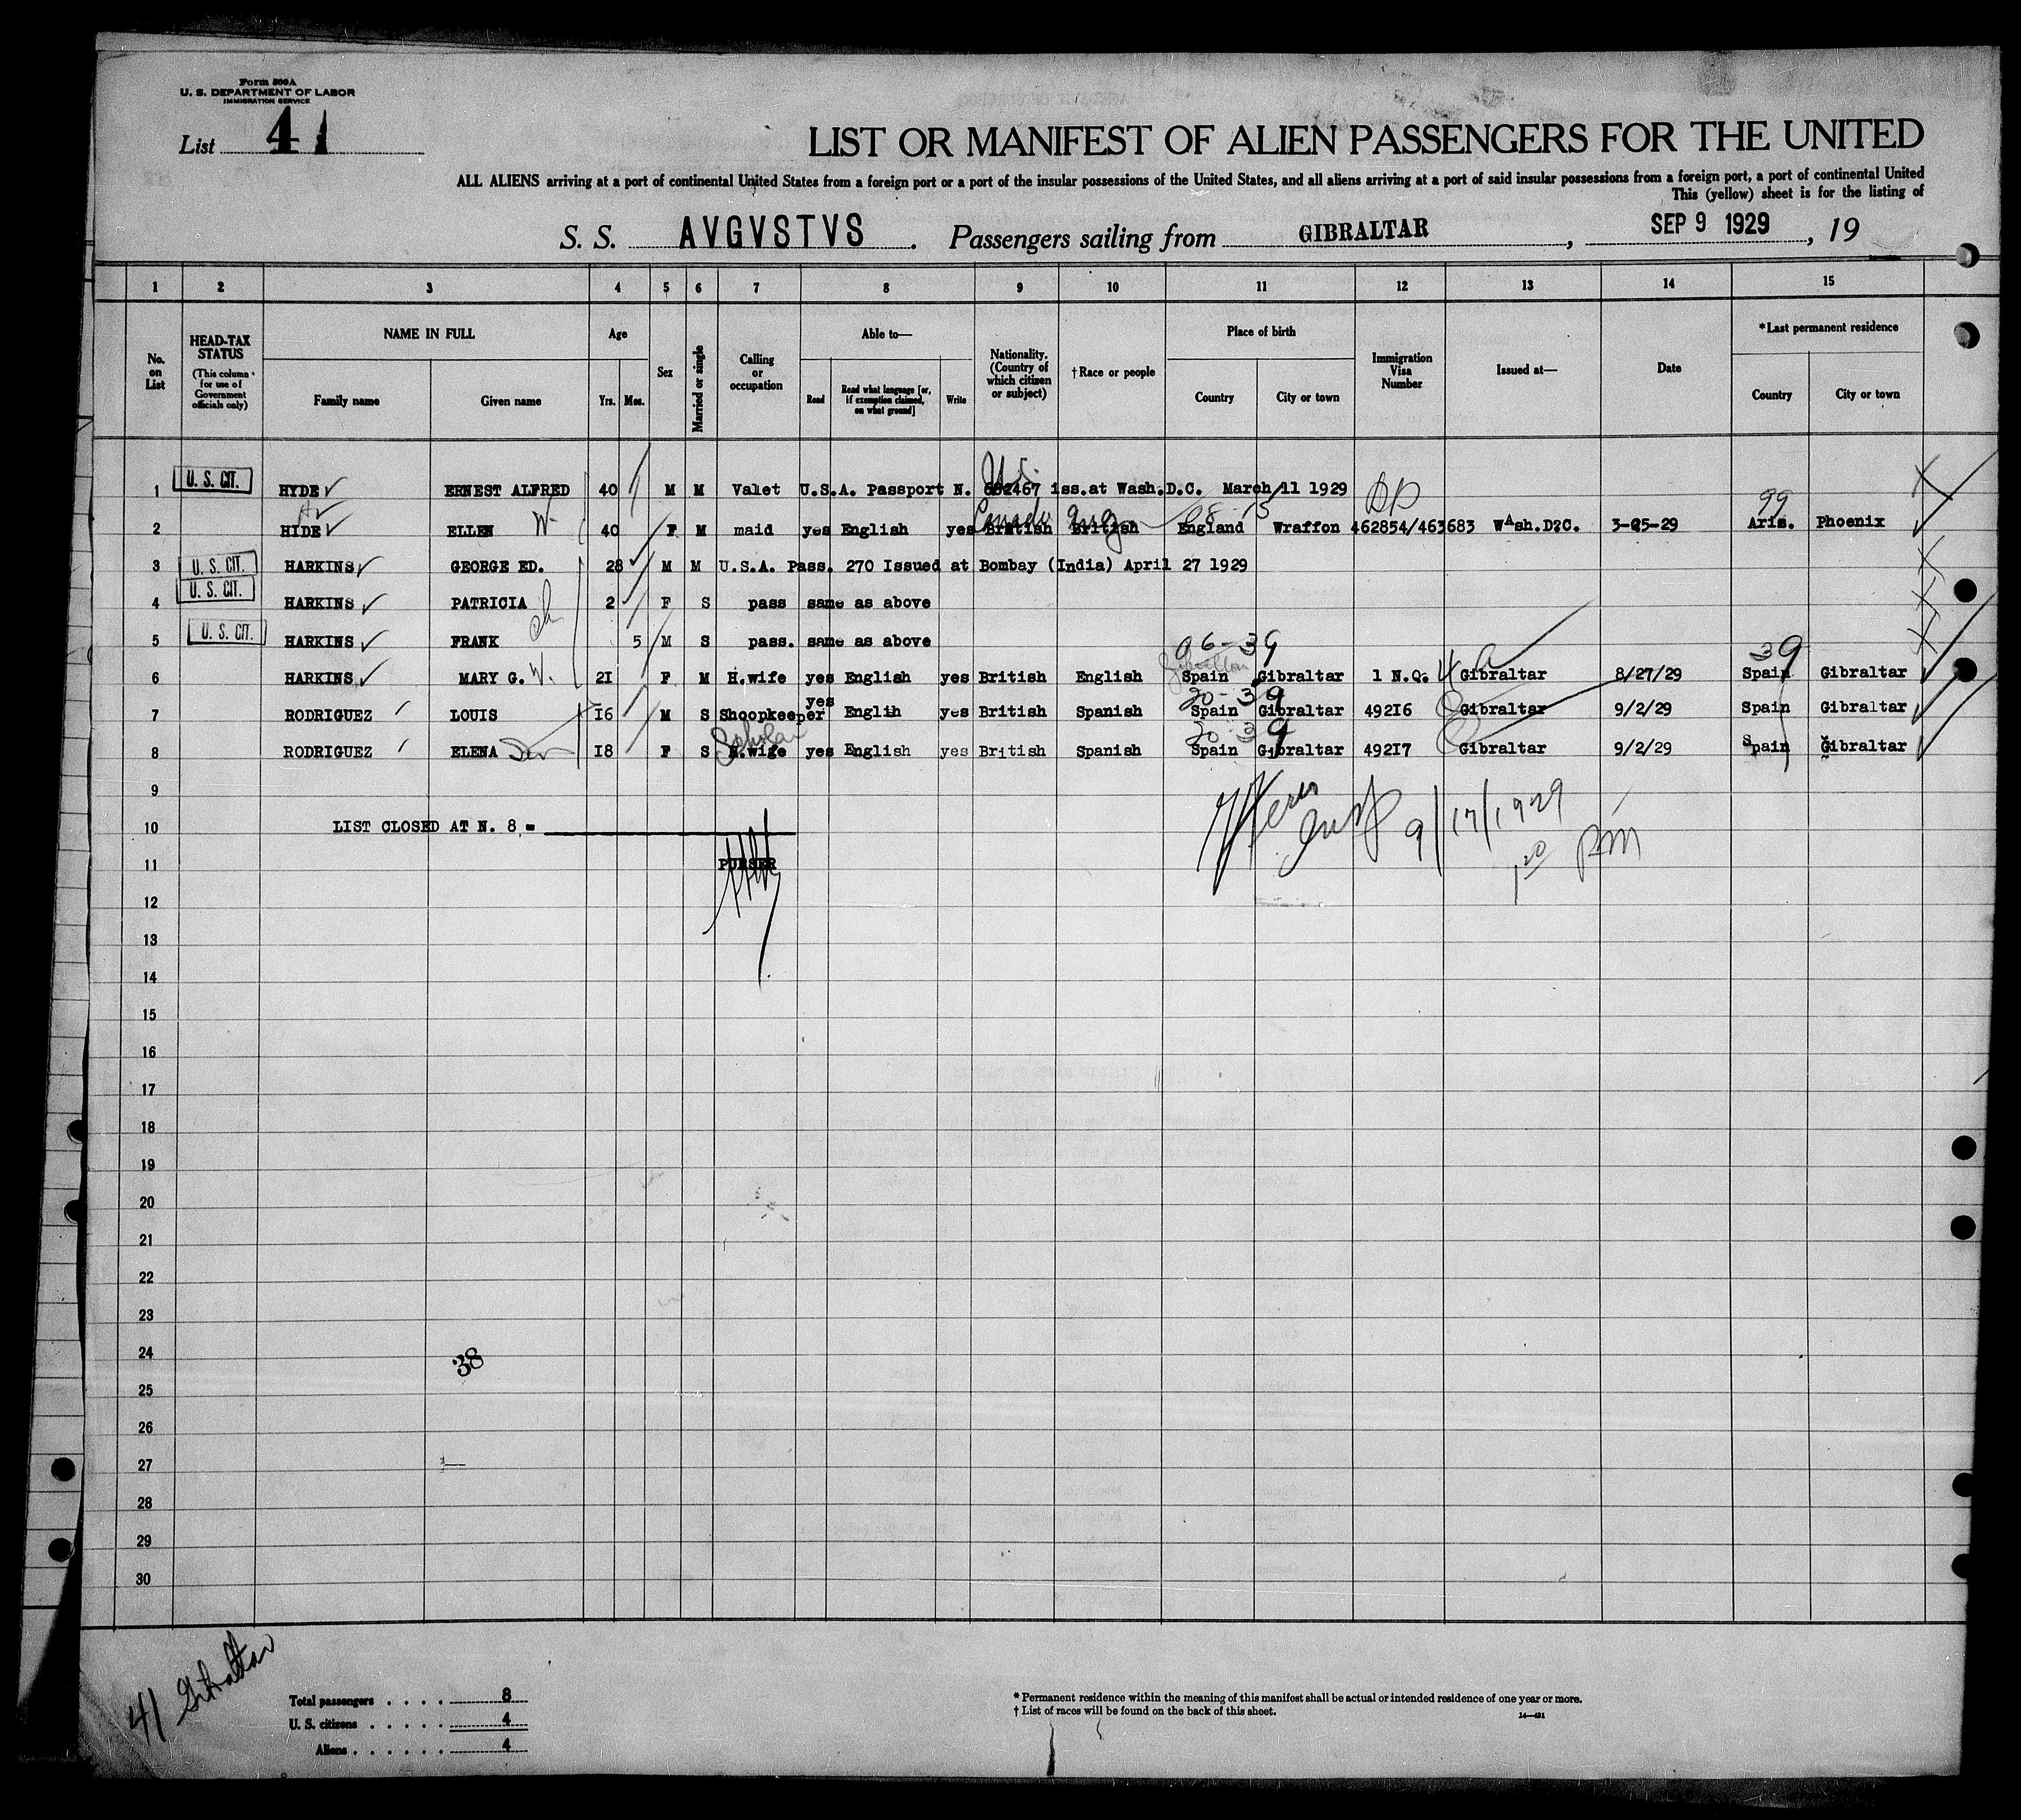 Form 500A
U. S. DEPARTMENT OF LABOR
IMMIGRATION SERVICE
List 41
LIST OR MANIFEST OF ALIEN PASSENGERS FOR THE UNITED
ALL ALIENS arriving at a port of continental United States from a foreign port or a port of the insular possessions of the United States, and all aliens arriving at a port of said insular possessions from a foreign port, a port of continental United
This (yellow) sheet is for the listing of
S. S. AVGVSTVS. Passengers sailing from GIBRALTAR, SEP 9 1929, 19
1 2 3 4 5 6 7 8 9 10 11 12 13 14 15
No. on List
HEAD-TAX STATUS (This column for use of Government officials only)
NAME IN FULL
Family name Given name
Age
Yrs. Mos.
Sex
Married or single
Calling or occupation
Able to—
Read Read what language [or, if exemption claimed, on what ground] Write
Nationality. (Country of which citizen or subject)
†Race or people
Place of birth
Country City or town
Immigration Visa Number
Issued at—
Date
*Last permanent residence
Country City or town
1 U. S. CIT. HYDE ERNEST ALFRED 40 M M Valet U.S.A. Passport N. 682467 iss.at Wash.D.C. March 11 1929
Canada Eng 08-15 DP 99
2 HIDE ELLEN W. 40 F M maid yes English yes British British England Wraffon 462854/463683 Wash.D?C. 3-25-29 Aris. Phoenix
3 U. S. CIT. HARKINS GEORGE ED. 28 M M U.S.A. Pass. 270 Issued at Bombay (India) April 27 1929
4 U. S. CIT. HARKINS PATRICIA ch 2 F S pass same as above
5 U. S. CIT. HARKINS FRANK 5 M S pass. same as above
06-39 39
Gibraltar
6 HARKINS MARY G. W. 2I F M H.wife yes English yes British English Spain Gibraltar 1 N.Q. 4 Gibraltar 8/27/29 Spain Gibraltar
20-39
7 RODRIGUEZ LOUIS I6 M S Shoopkeeper yes Englih yes British Spanish Spain Gibraltar 492I6 Gibraltar 9/2/29 Spain Gibraltar
Scholar 20-39
8 RODRIGUEZ ELENA I8 F S H.wife yes English yes British Spanish Spain Gibraltar 492I7 Gibraltar 9/2/29 Spain Gibraltar
9
10 LIST CLOSED AT N. 8.=
9/17/1929
11 PURSER
1 20 PM
12
13
14
15
16
17
18
19
20
21
22
23
24
38
25
26
27
28
29
30
41 Gibraltar
Total passengers . . . . 8
U. S. citizens . . . . . 4
Aliens . . . . . . 4
* Permanent residence within the meaning of this manifest shall be actual or intended residence of one year or more.
† List of races will be found on the back of this sheet.
14—431